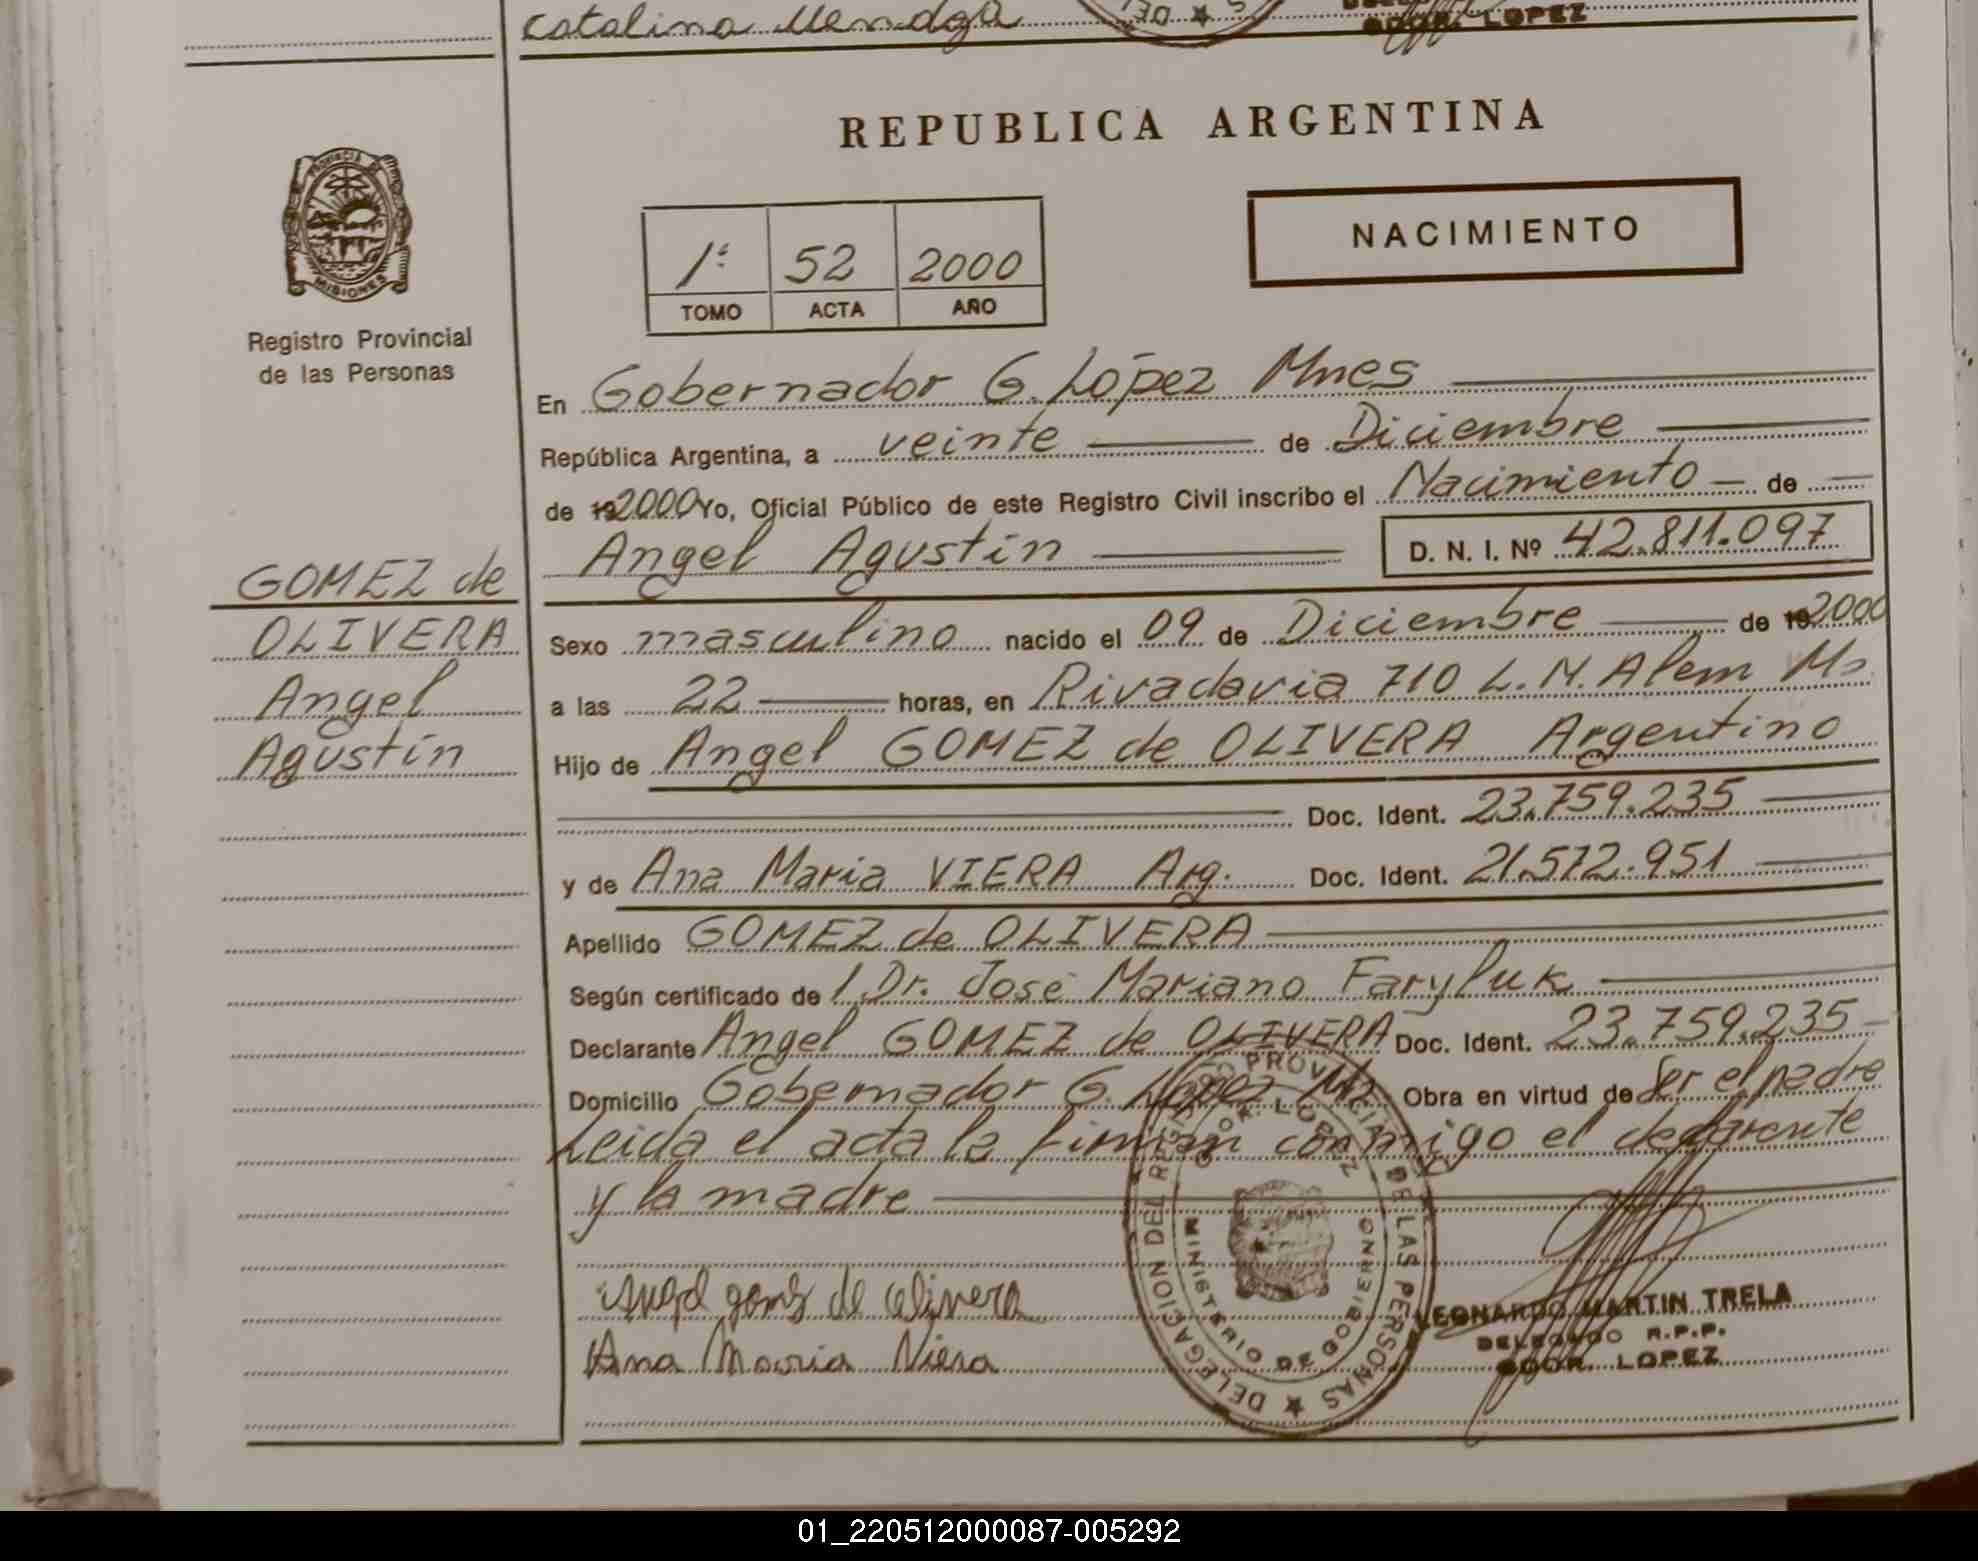 Catalina Mendoza
GDOR. LOPEZ
REPUBLICA ARGENTINA
PROVINCIA DE
MISIONES
Registro Provincial
de las Personas
1º 52 2000
TOMO ACTA AÑO
NACIMIENTO
En Gobernador G. López Mnes
República Argentina, a veinte de Diciembre
de 192000 Yo, Oficial Público de este Registro Civil inscribo el Nacimiento de
Angel Agustín D. N. I. Nº 42.811.097
GOMEZ de
OLIVERA
Angel
Agustín
Sexo masculino nacido el 09 de Diciembre de 192000
a las 22 horas, en Rivadavia 710 L. N. Alem Ms
Hijo de Angel GOMEZ de OLIVERA Argentino
Doc. Ident. 23.759.235
y de Ana Maria VIERA Arg. Doc. Ident. 21.572.951
Apellido GOMEZ de OLIVERA
Según certificado de l Dr. José Mariano Faryluk
Declarante Angel GOMEZ de OLIVERA Doc. Ident. 23.759.235
Domicilio Gobernador G. López Mns Obra en virtud de Ser el padre
Leida el acta la firman conmigo el declarante
y la madre
Angel gomez de olivera
Ana Maria Viera
DELEGACION DEL REGISTRO PROVINCIAL DE LAS PERSONAS
GDOR. LOPEZ
MINISTERIO DE GOBIERNO
LEONARDO MARTIN TRELA
DELEGADO R.P.P.
GDOR. LOPEZ
01_220512000087-005292